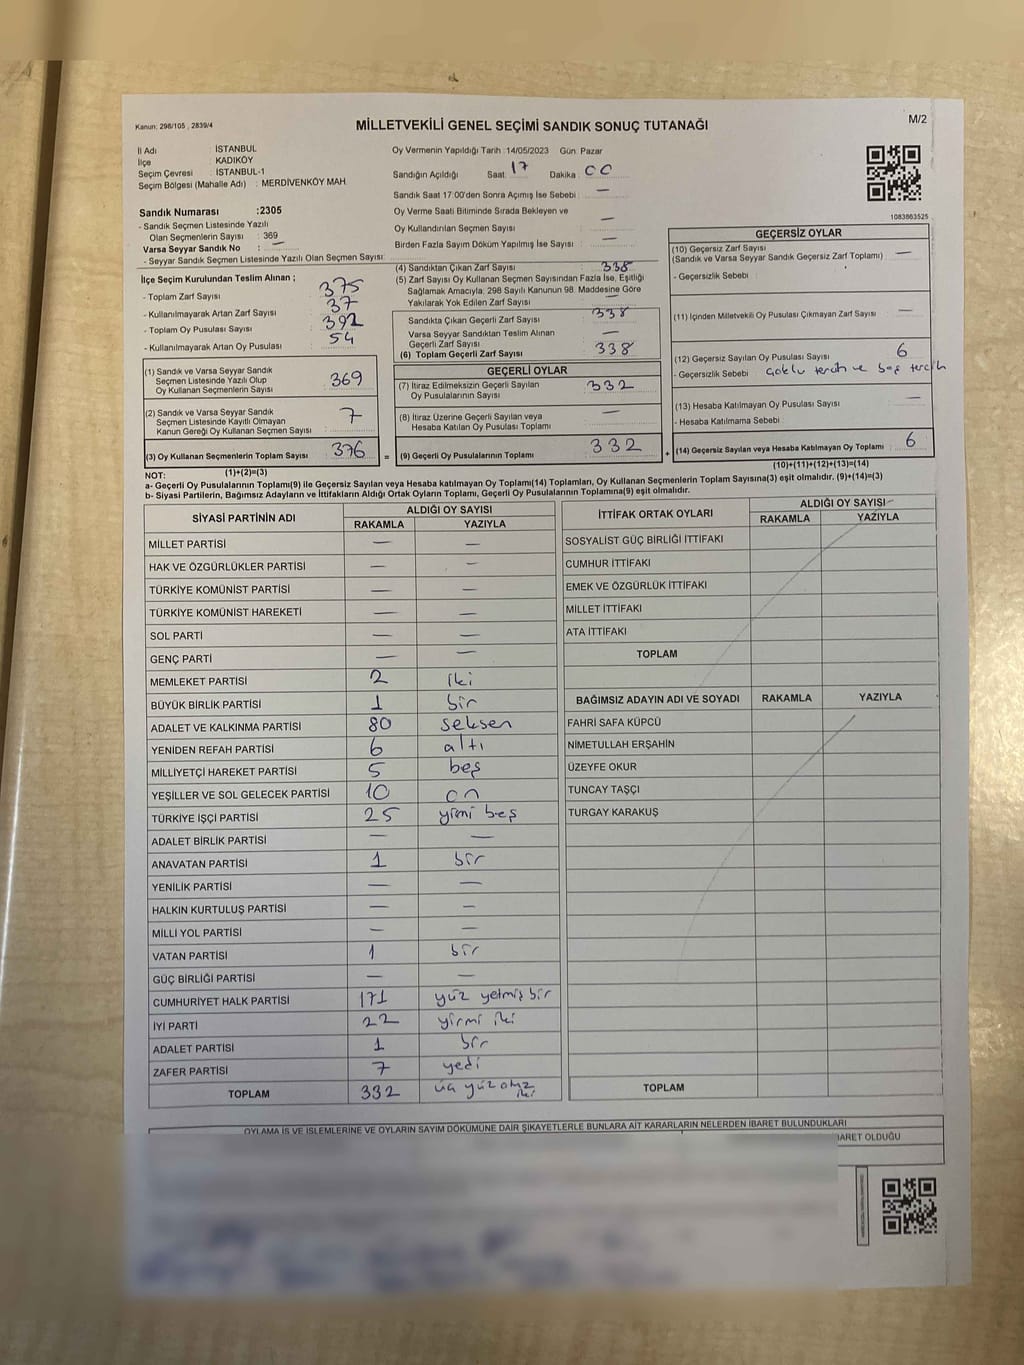 Kanun: 298/105 , 2839/4
MİLLETVEKİLİ GENEL SEÇİMİ SANDIK SONUÇ TUTANAĞI
M/2
İl Adı : İSTANBUL
İlçe : KADIKÖY
Seçim Çevresi : İSTANBUL-1
Seçim Bölgesi (Mahalle Adı) : MERDİVENKÖY MAH.
Sandık Numarası :2305
- Sandık Seçmen Listesinde Yazılı
Olan Seçmenlerin Sayısı : 369
Varsa Seyyar Sandık No : —
- Seyyar Sandık Seçmen Listesinde Yazılı Olan Seçmen Sayısı:
Oy Vermenin Yapıldığı Tarih :14/05/2023 Gün: Pazar
Sandığın Açıldığı Saat 17 Dakika 00
Sandık Saat 17:00'den Sonra Açımış İse Sebebi : —
Oy Verme Saati Bitiminde Sırada Bekleyen ve
Oy Kullandırılan Seçmen Sayısı : —
Birden Fazla Sayım Döküm Yapılmış İse Sayısı : —
1083863525
İlçe Seçim Kurulundan Teslim Alınan ;
- Toplam Zarf Sayısı : 375
- Kullanılmayarak Artan Zarf Sayısı : 37
- Toplam Oy Pusulası Sayısı : 392
- Kullanılmayarak Artan Oy Pusulası : 54
(1) Sandık ve Varsa Seyyar Sandık
Seçmen Listesinde Yazılı Olup
Oy Kullanan Seçmenlerin Sayısı : 369
(2) Sandık ve Varsa Seyyar Sandık
Seçmen Listesinde Kayıtlı Olmayan
Kanun Gereği Oy Kullanan Seçmen Sayısı : 7
(3) Oy Kullanan Seçmenlerin Toplam Sayısı : 376
(1)+(2)=(3)
(4) Sandıktan Çıkan Zarf Sayısı : 338
(5) Zarf Sayısı Oy Kullanan Seçmen Sayısından Fazla İse, Eşitliği
Sağlamak Amacıyla, 298 Sayılı Kanunun 98. Maddesine Göre
Yakılarak Yok Edilen Zarf Sayısı : —
Sandıkta Çıkan Geçerli Zarf Sayısı : 338
Varsa Seyyar Sandıktan Teslim Alınan
Geçerli Zarf Sayısı : —
(6) Toplam Geçerli Zarf Sayısı : 338
GEÇERLİ OYLAR
(7) İtiraz Edilmeksizin Geçerli Sayılan
Oy Pusulalarının Sayısı : 332
(8) İtiraz Üzerine Geçerli Sayılan veya
Hesaba Katılan Oy Pusulası Toplamı : —
= (9) Geçerli Oy Pusulalarının Toplamı : 332 +
GEÇERSİZ OYLAR
(10) Geçersiz Zarf Sayısı
(Sandık ve Varsa Seyyar Sandık Geçersiz Zarf Toplamı) : —
- Geçersizlik Sebebi :
(11) İçinden Milletvekili Oy Pusulası Çıkmayan Zarf Sayısı : —
(12) Geçersiz Sayılan Oy Pusulası Sayısı : 6
- Geçersizlik Sebebi : Çoklu tercih ve boş tercih
(13) Hesaba Katılmayan Oy Pusulası Sayısı : —
- Hesaba Katılmama Sebebi :
(14) Geçersiz Sayılan veya Hesaba Katılmayan Oy Toplamı : 6
(10)+(11)+(12)+(13)=(14)
NOT:
a- Geçerli Oy Pusulalarının Toplamı(9) ile Geçersiz Sayılan veya Hesaba katılmayan Oy Toplamı(14) Toplamları, Oy Kullanan Seçmenlerin Toplam Sayısına(3) eşit olmalıdır. (9)+(14)=(3)
b- Siyasi Partilerin, Bağımsız Adayların ve İttifakların Aldığı Ortak Oyların Toplamı, Geçerli Oy Pusulalarının Toplamına(9) eşit olmalıdır.
SİYASİ PARTİNİN ADI ALDIĞI OY SAYISI
RAKAMLA YAZIYLA
MİLLET PARTİSİ — —
HAK VE ÖZGÜRLÜKLER PARTİSİ — —
TÜRKİYE KOMÜNİST PARTİSİ — —
TÜRKİYE KOMÜNİST HAREKETİ — —
SOL PARTİ — —
GENÇ PARTİ — —
MEMLEKET PARTİSİ 2 iki
BÜYÜK BİRLİK PARTİSİ 1 bir
ADALET VE KALKINMA PARTİSİ 80 seksen
YENİDEN REFAH PARTİSİ 6 altı
MİLLİYETÇİ HAREKET PARTİSİ 5 beş
YEŞİLLER VE SOL GELECEK PARTİSİ 10 on
TÜRKİYE İŞÇİ PARTİSİ 25 yirmi beş
ADALET BİRLİK PARTİSİ — —
ANAVATAN PARTİSİ 1 bir
YENİLİK PARTİSİ — —
HALKIN KURTULUŞ PARTİSİ — —
MİLLİ YOL PARTİSİ — —
VATAN PARTİSİ 1 bir
GÜÇ BİRLİĞİ PARTİSİ — —
CUMHURİYET HALK PARTİSİ 171 yüz yetmiş bir
İYİ PARTİ 22 yirmi iki
ADALET PARTİSİ 1 bir
ZAFER PARTİSİ 7 yedi
TOPLAM 332 üç yüz otuz iki
İTTİFAK ORTAK OYLARI ALDIĞI OY SAYISI
RAKAMLA YAZIYLA
SOSYALİST GÜÇ BİRLİĞİ İTTİFAKI
CUMHUR İTTİFAKI
EMEK VE ÖZGÜRLÜK İTTİFAKI
MİLLET İTTİFAKI
ATA İTTİFAKI
TOPLAM
BAĞIMSIZ ADAYIN ADI VE SOYADI RAKAMLA YAZIYLA
FAHRİ SAFA KÜPCÜ
NİMETULLAH ERŞAHİN
ÜZEYFE OKUR
TUNCAY TAŞÇI
TURGAY KARAKUŞ
TOPLAM
OYLAMA İŞ VE İŞLEMLERİNE VE OYLARIN SAYIM DÖKÜMÜNE DAİR ŞİKAYETLERLE BUNLARA AİT KARARLARIN NELERDEN İBARET BULUNDUKLARI
İBARET OLDUĞU